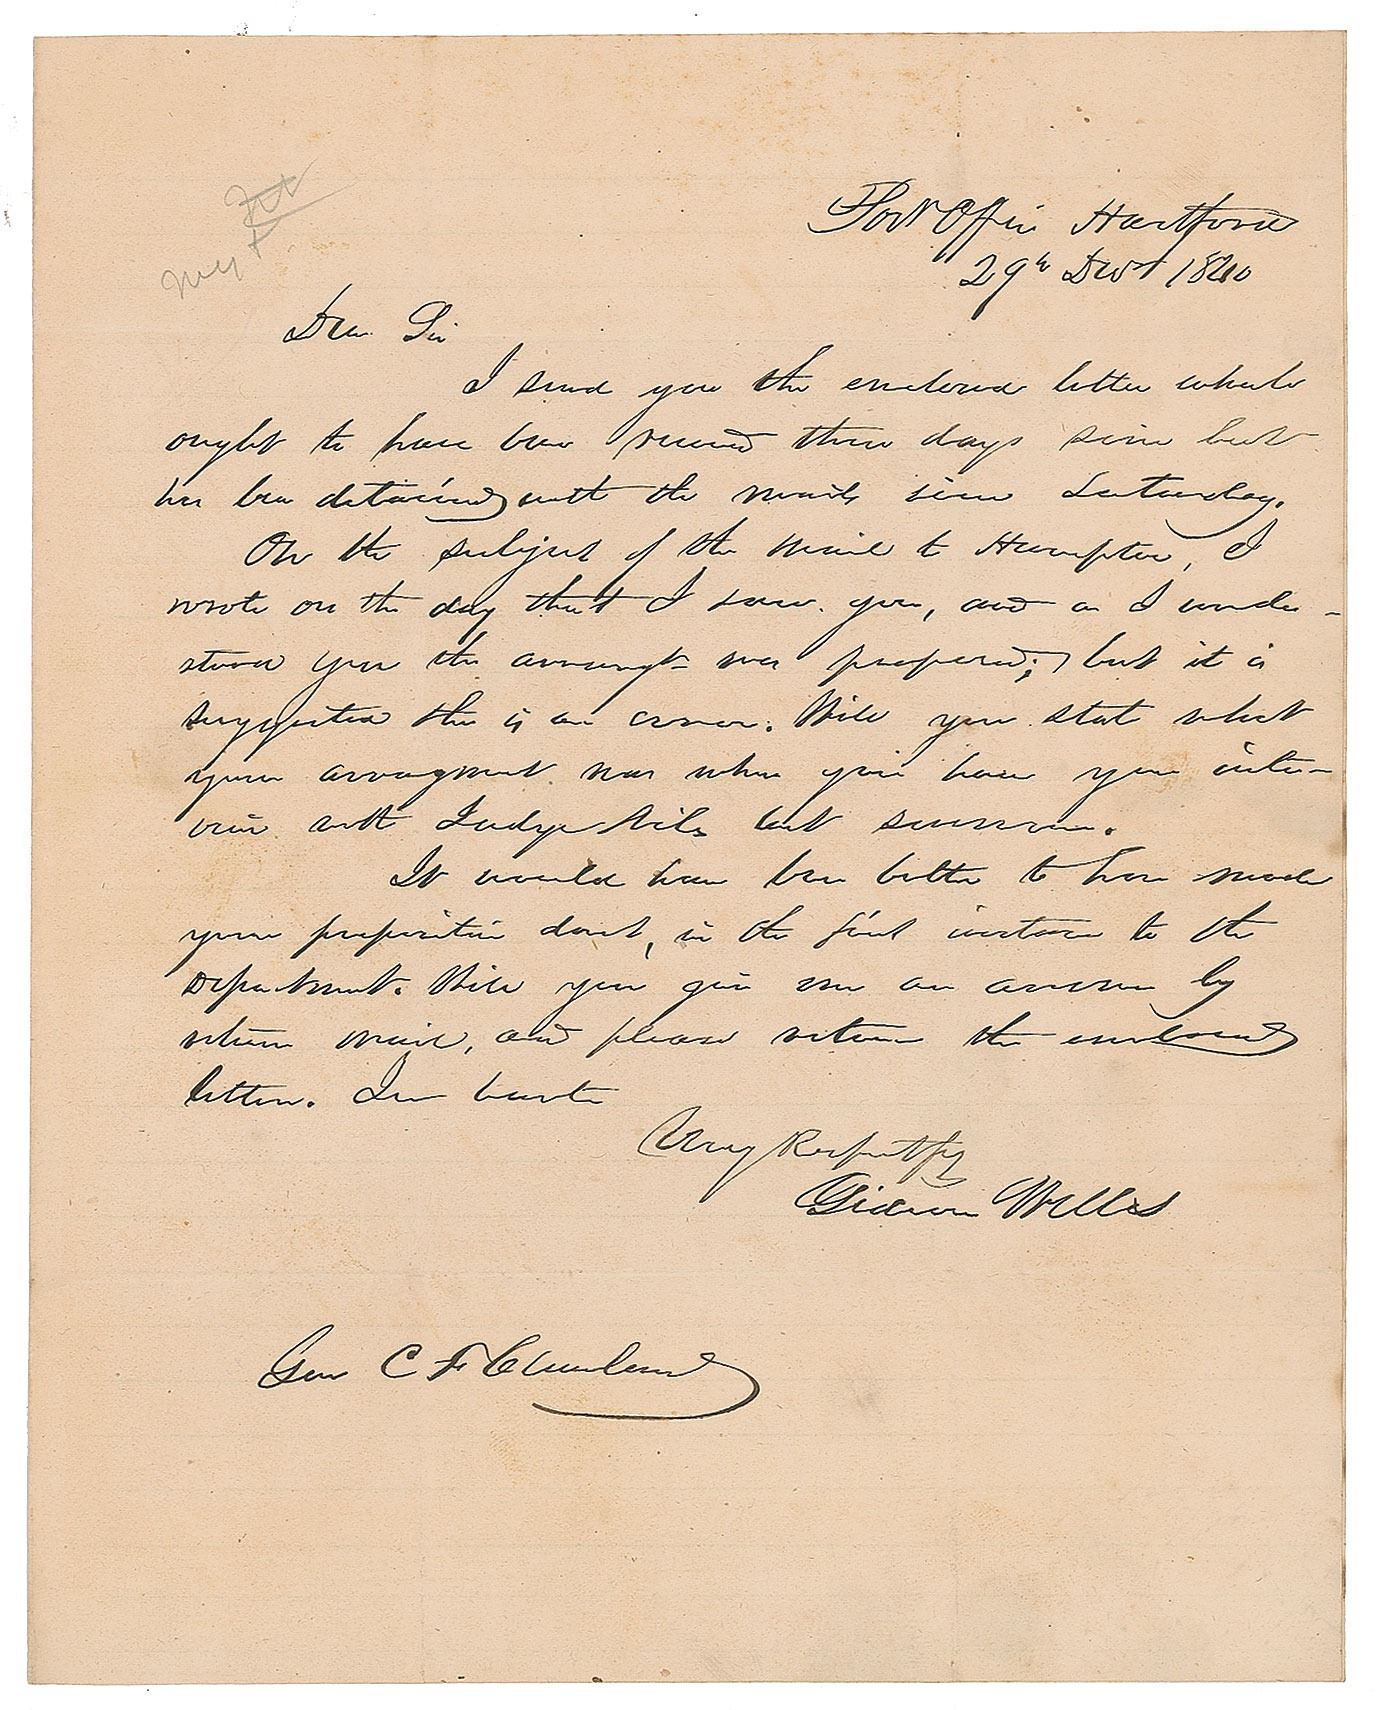 Post Office Hartford
29th Decr 1840
Dear Sir
I send you the enclosed letter which
ought to have been received three days since but
has been detained with the mails since Saturday.
On the subject of the mail to Hampton, I
wrote on the day that I saw you, and as I under-
stood you the arrangt was proposed; but it is
suggested there is an error. Will you state what
your arrangment was when you had your inter-
view with Judge Niles last summer.
It would have been better to have made
your proposition direct, in the first instance to the
Department. Will you give me an answer by
return mail, and please return the enclosed
letter. In haste
Very Respectfly
Gideon Welles
Gen C F Cleveland